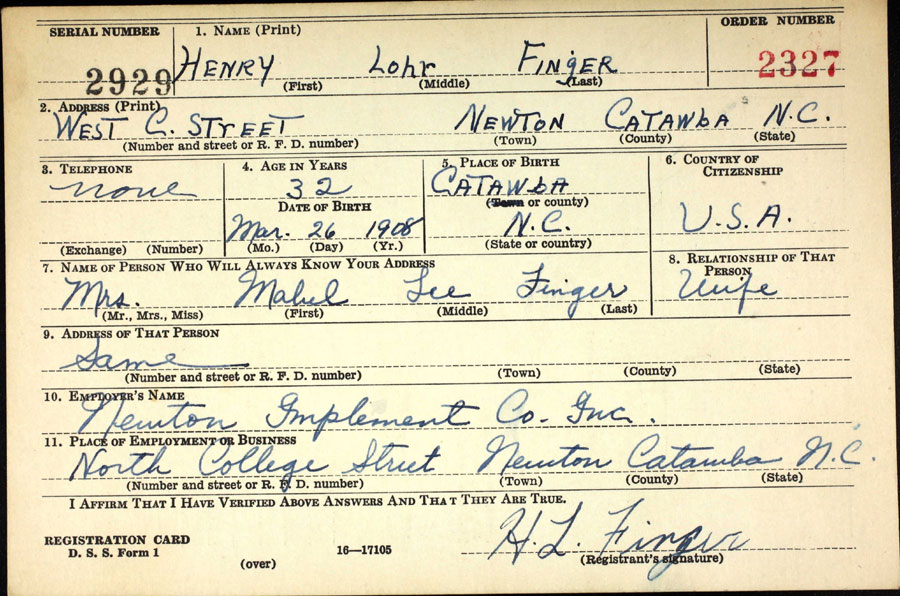 SERIAL NUMBER 1. NAME (Print) ORDER NUMBER
2929 HENRY Lohr FINGER 2327
(First) (Middle) (Last)
2. ADDRESS (Print)
WEST C. STREET NEWTON CATAWbA N.C.
(Number and street or R. F. D. number) (Town) (County) (State)
3. TELEPHONE 4. AGE IN YEARS 5. PLACE OF BIRTH 6. COUNTRY OF CITIZENSHIP
none 32 CATAWbA
DATE OF BIRTH (Town or county)
Mar. 26 1908 N.C. U.S.A.
(Exchange) (Number) (Mo.) (Day) (Yr.) (State or country)
7. NAME OF PERSON WHO WILL ALWAYS KNOW YOUR ADDRESS 8. RELATIONSHIP OF THAT PERSON
Mrs. Mabel Lee Finger Wife
(Mr., Mrs., Miss) (First) (Middle) (Last)
9. ADDRESS OF THAT PERSON
Same
(Number and street or R. F. D. number) (Town) (County) (State)
10. EMPLOYER'S NAME
Newton Implement Co. Inc.
11. PLACE OF EMPLOYMENT OR BUSINESS
North College Street Newton Catawba N.C.
(Number and street or R. F. D. number) (Town) (County) (State)
I AFFIRM THAT I HAVE VERIFIED ABOVE ANSWERS AND THAT THEY ARE TRUE.
H. L. Finger
REGISTRATION CARD
D. S. S. Form 1 16—17105 (Registrant's signature)
(over)